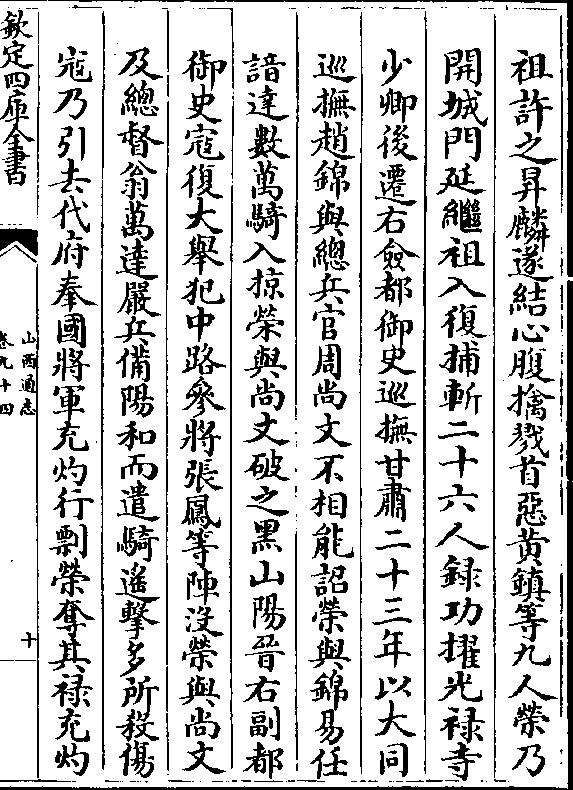 祖許之昇麟遂結心腹擒戮首惡黄鎮等九人榮乃
開城門延繼祖入復捕斬二十六人録功擢光禄寺
少卿後遷右僉都御史巡撫甘肅二十三年以大同
巡撫趙錦與總兵官周尚文不相能詔榮與錦易任
諳達數萬騎入掠榮與尚文破之黑山陽晉右副都
御史寇復大舉犯中路叅將張鳳等陣没榮與尚文
及總督翁萬達嚴兵備陽和而遣騎遙擊多所殺傷
寇乃引去代府奉國將軍充灼行剽榮奪其禄充灼
欽定四庫全書
山西通志
卷九十四
十